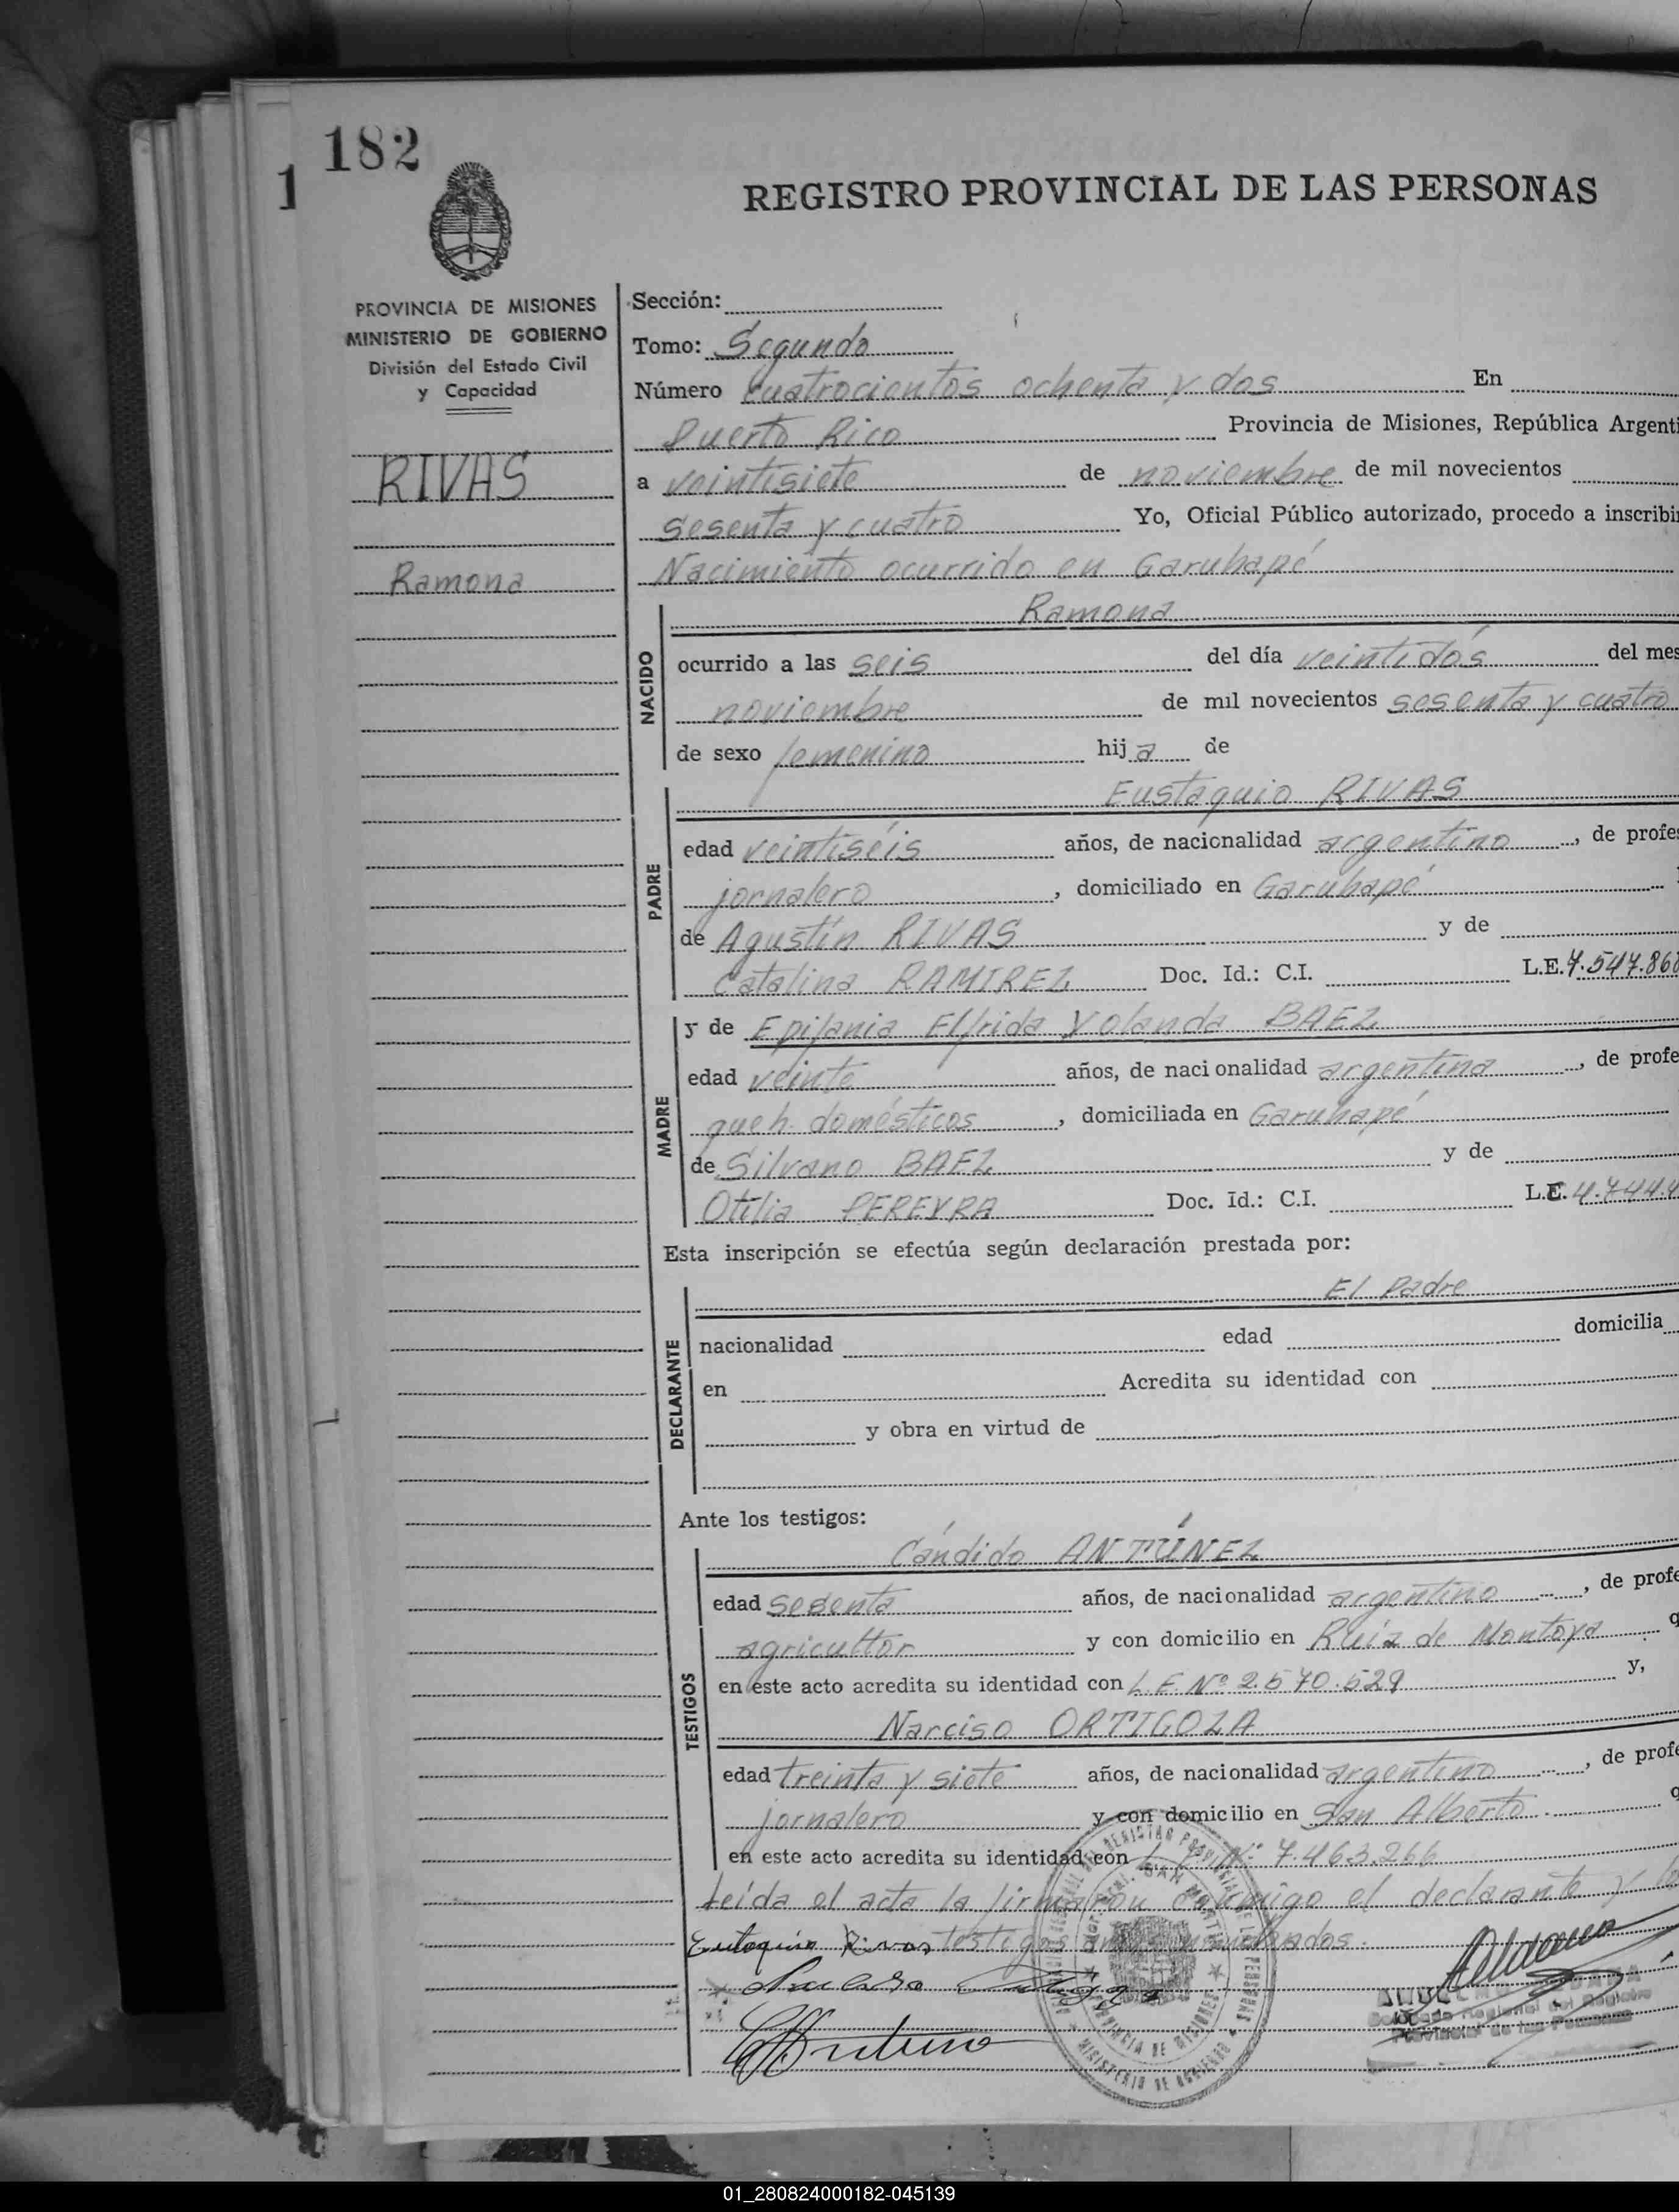 182
1
REGISTRO PROVINCIAL DE LAS PERSONAS
PROVINCIA DE MISIONES
MINISTERIO DE GOBIERNO
División del Estado Civil
y Capacidad
RIVAS
Ramona
Sección:
Tomo: Segundo
Número cuatrocientos ochenta y dos En
Puerto Rico Provincia de Misiones, República Argenti
a veintisiete de noviembre de mil novecientos
sesenta y cuatro Yo, Oficial Público autorizado, procedo a inscribir
Nacimiento ocurrido en Garuhapé
NACIDO
Ramona
ocurrido a las seis del día veintidós del mes
noviembre de mil novecientos sesenta y cuatro
de sexo femenino hija de
PADRE
Eustaquio RIVAS
edad veintiséis años, de nacionalidad argentino, de profes
jornalero, domiciliado en Garuhapé
de Agustín RIVAS y de
Catalina RAMIREZ Doc. Id.: C.I. L.E. 7.547.868
MADRE
y de Epifania Elfrida Yolanda BAEZ
edad veinte años, de nacionalidad argentina, de profe
queh. domésticos, domiciliada en Garuhapé
de Silvano BAEZ y de
Otilia PEREYRA Doc. Id.: C.I. L.E. 4.744.4
Esta inscripción se efectúa según declaración prestada por:
DECLARANTE
El padre
nacionalidad edad domicilia
en Acredita su identidad con
y obra en virtud de
Ante los testigos:
TESTIGOS
Cándido ANTÚNEZ
edad sesenta años, de nacionalidad argentino, de profe
agricultor y con domicilio en Ruiz de Montoya q
en este acto acredita su identidad con L.E. Nº 2.570.529 y,
Narciso ORTIGOZA
edad treinta y siete años, de nacionalidad argentino, de profe
jornalero y con domicilio en San Alberto q
en este acto acredita su identidad con Nº 7.463.266
Leída el acta la firmaron conmigo el declarante y los
Eustaquio Rivas testigos nombrados.
Delegado Regional del Registro
Provincial de las Personas
01_280824000182-045139